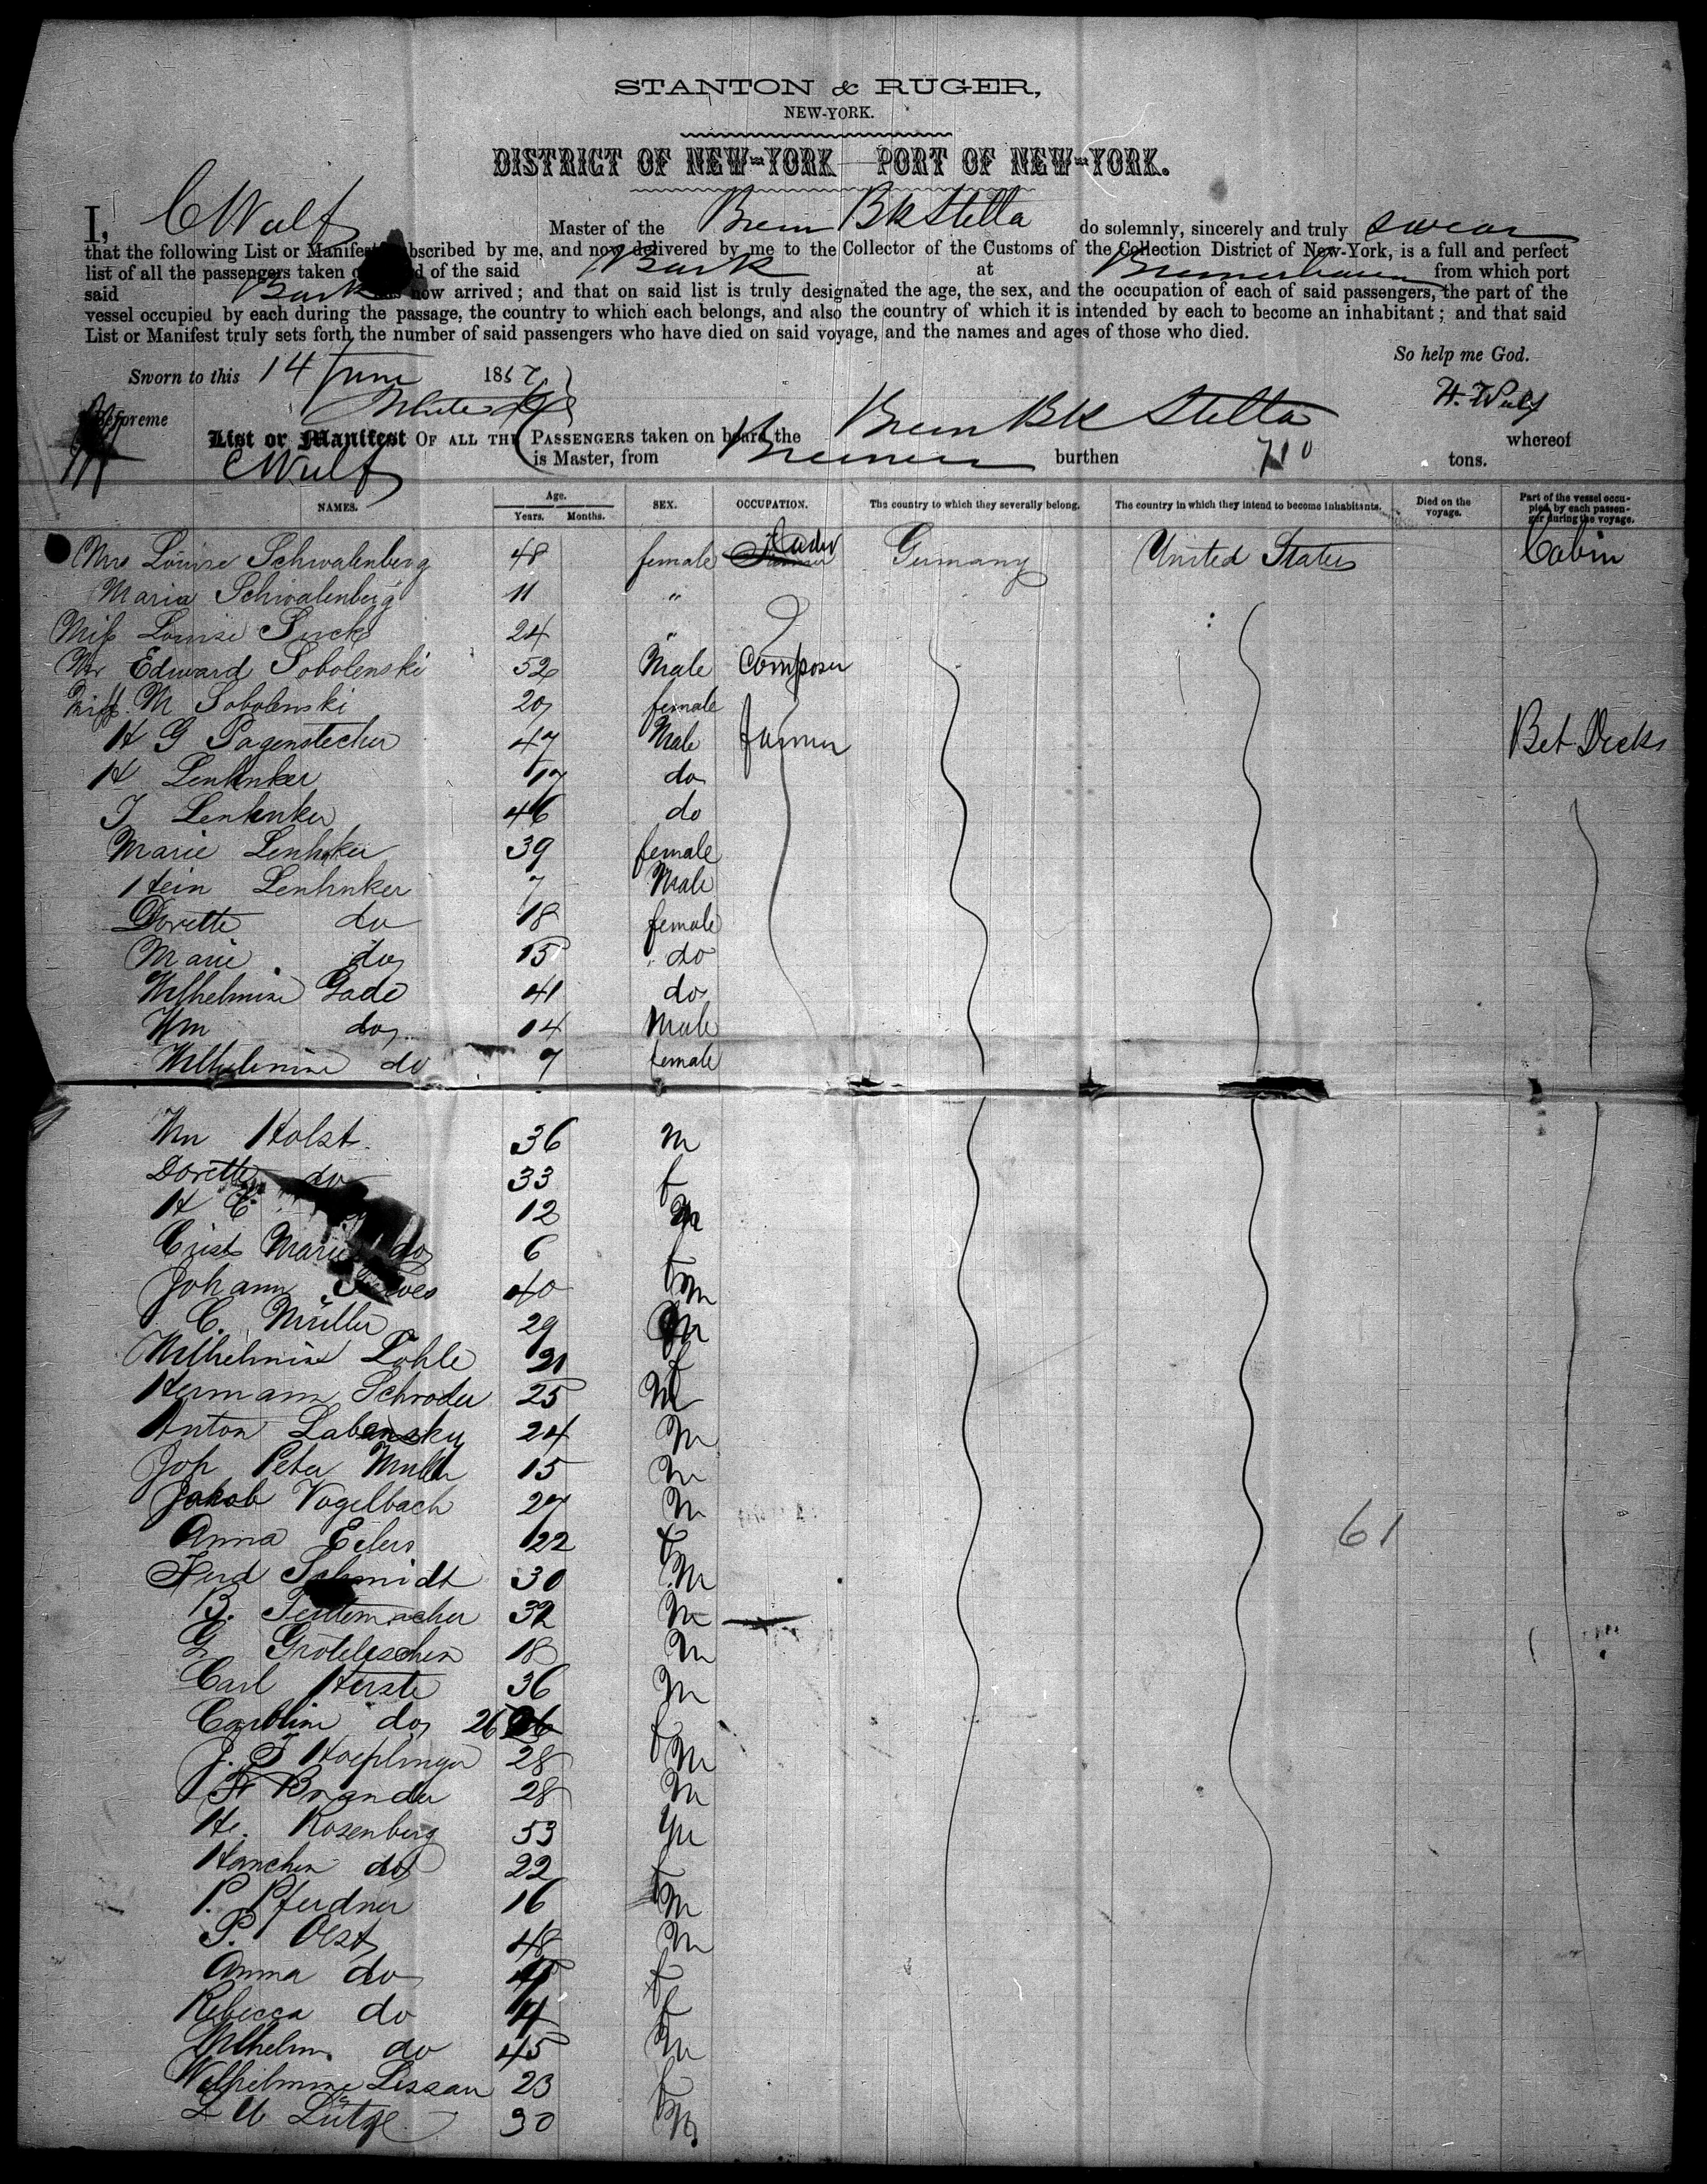 STANTON & RUGER,
NEW-YORK.
DISTRICT OF NEW-YORK PORT OF NEW-YORK.
I, C Wulf Master of the Brem Bk Stella do solemnly, sincerely and truly swear
that the following List or Manifest subscribed by me, and now delivered by me to the Collector of the Customs of the Collection District of New-York, is a full and perfect
list of all the passengers taken of the said Bark at Bremerhaven from which port
said Bark now arrived; and that on said list is truly designated the age, the sex, and the occupation of each of said passengers, the part of the
vessel occupied by each during the passage, the country to which each belongs, and also the country of which it is intended by each to become an inhabitant; and that said
List or Manifest truly sets forth the number of said passengers who have died on said voyage, and the names and ages of those who died.
So help me God.
Sworn to this 14 June 18
Before me H. Wulf
List or Manifest OF ALL THE PASSENGERS taken on board the Brem Bk Stella whereof
C Wulf is Master, from Bremen burthen 710 tons.
NAMES. Age. Years. Months. SEX. OCCUPATION. The country to which they severally belong. The country in which they intend to become inhabitants. Died on the voyage. Part of the vessel occupied by each passenger during the voyage.
Mrs Louise Schwalenberg 48 female Germany United States Cabin
Maria Schwalenberg 11 "
Miss Louise 24 "
Mr Edward Sobolenski 52 Male Composer
Miss M Sobolenski 20 female
H G Pagenstecher 47 Male farmer Bet Decks
H Lenhnker 17 do
J Lenhnker 46 do
Marie Lenhnker 39 female
Hein Lenhnker 7 Male
Dorette do 18 female
Marie do 15 do
Wilhelmine Gade 41 do
Wm do 14 Male
Wilhelmine do 9 female
Wm Holst 36 m
Dorette do 33 f
H C 12 m
Crist Marie do 6 f
Johann 40 m
C. Müller 29 m
Wilhelmine Lohle 21 f
Hermann Schroder 25 M
Anton Labensky 24 m
Joh Peter Muller 15 m
Jakob Vogelbach 27 m
61
Anna Eilers 22 f
Ferd Schmidt 30 m
B. 32 m
G Groteleschen 18 m
Carl Herste 36 m
Caroline do 26 f
J. 28 m
F Brander 28 m
He. Rosenberg 53 m
Hanchen do 22 f
P. Pferdner 16 m
P. Oest 48 m
Anna do f
Rebecca do 4 f
Wilhelm do 45 m
Wilhelmine Lissau 23 f
L W Lütge 30 m